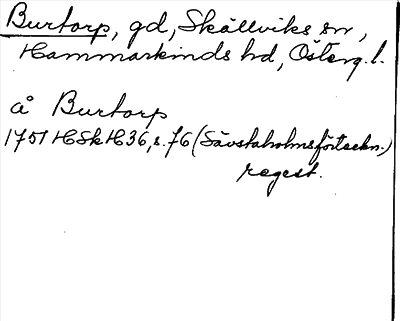 Burtorp, gd, Skällviks sn,
Hammarkinds hd, Österg. l.
å Burtorp
1751 HSkH36, s. 76 (Sävstaholmsförteckn.)
regest.